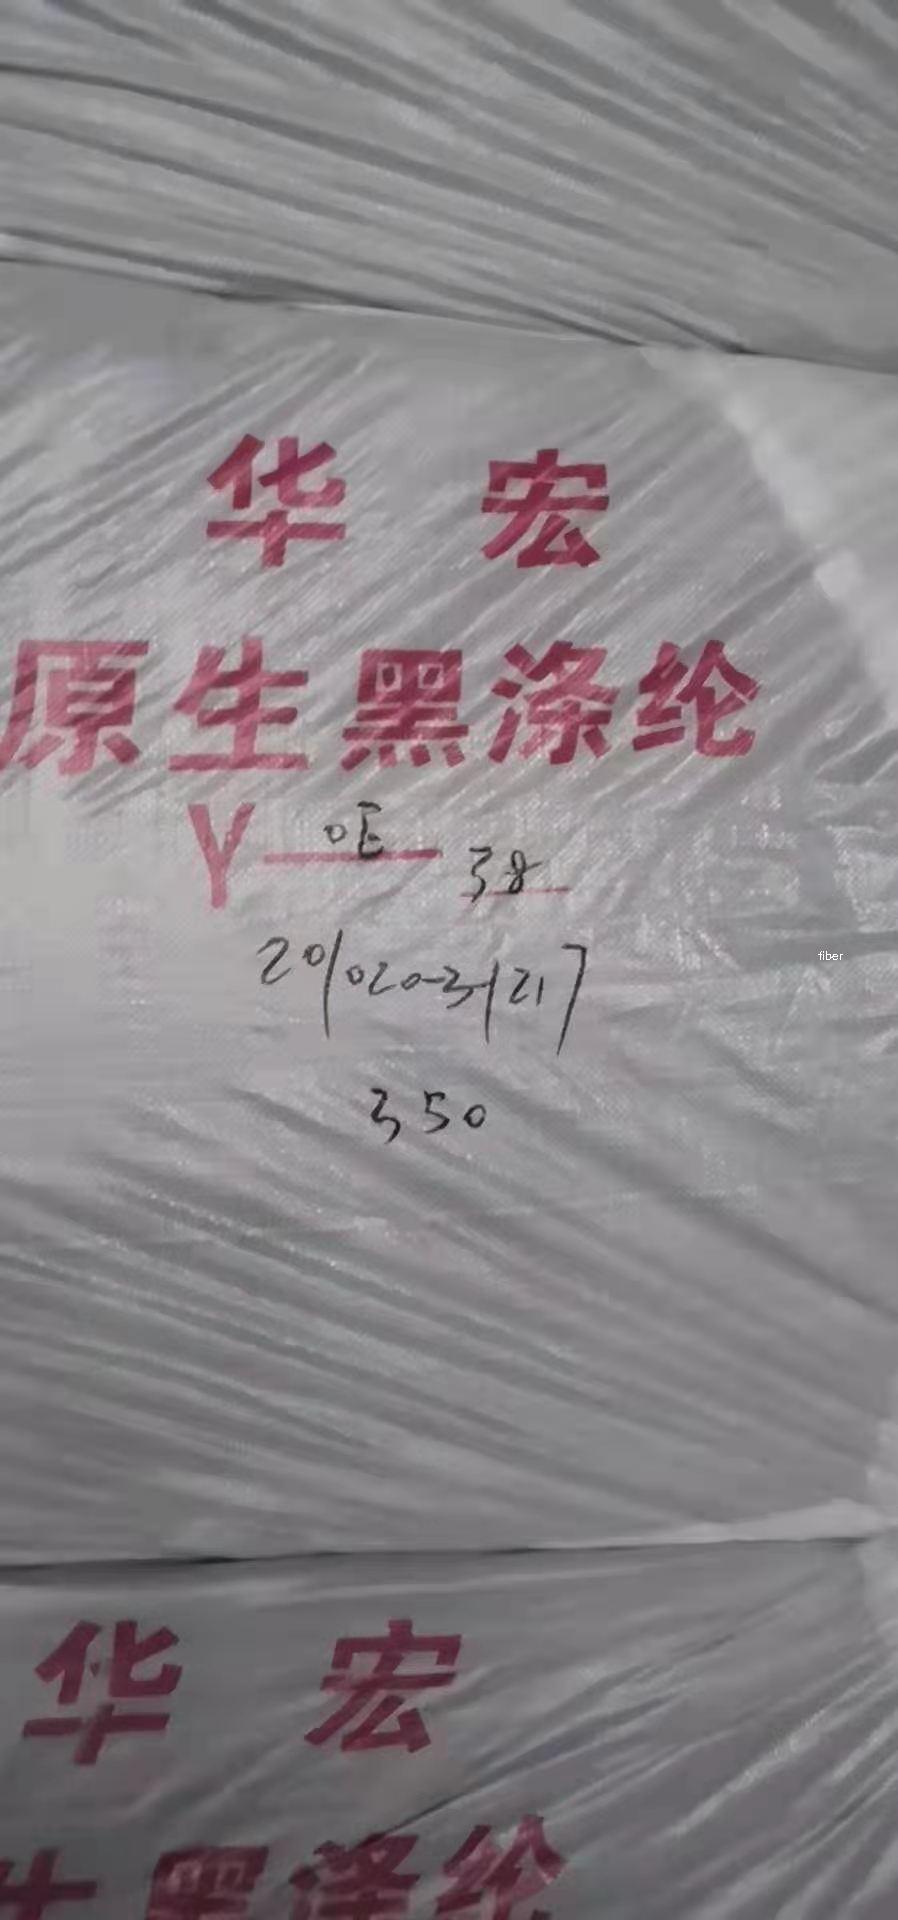 华 宏
原生黑涤纶
Y OE 38
350
fiber
华 宏
生黑涤纶